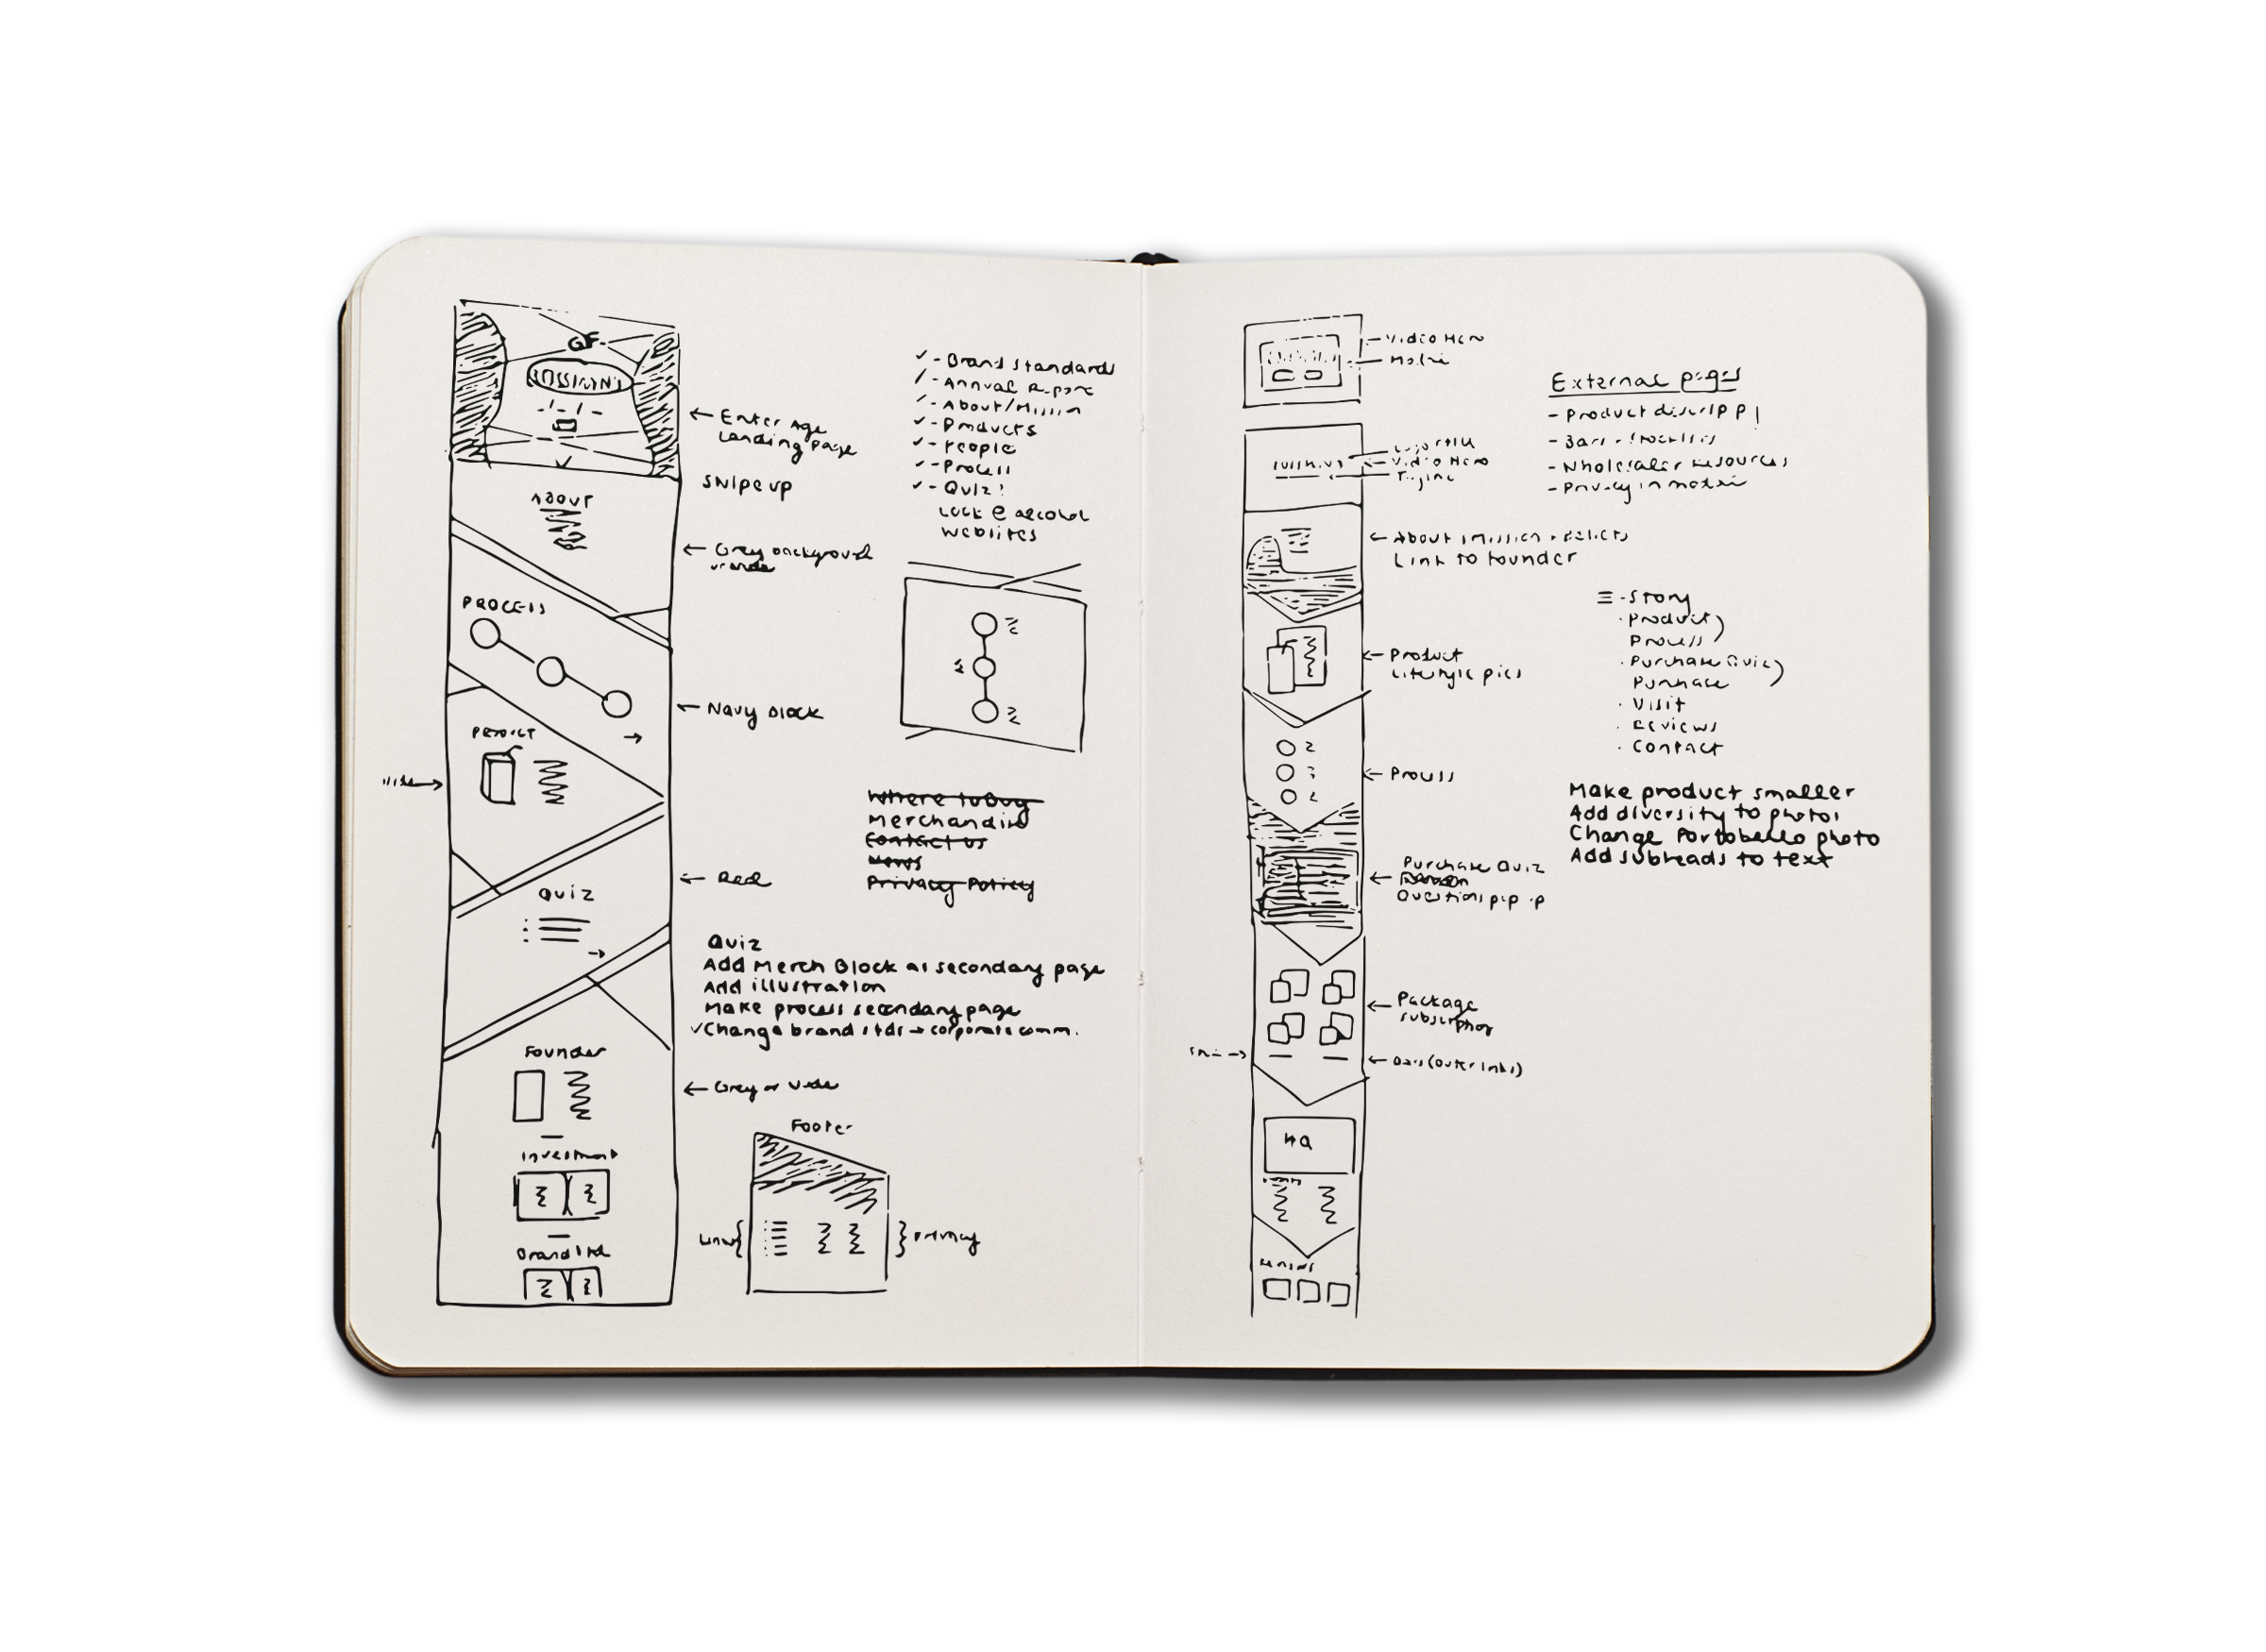 GF.
ABOUT
PROCESS
PRODUCT
QUIZ
Founder
Investment
← Enter Age
Landing page
Swipe up
← Grey background
← Navy Block
← Red
← Grey or
✓ - Brand Standards
/ - Annual Report
✓ - About/Mission
✓ - Products
✓ - People
✓ - Process
✓ - Quiz?
Look @ alcohol
websites
Where to Buy
Merchandise
Contact Us
News
Privacy Policy
Quiz
Add Merch Block as secondary page
Add illustration
Make process secondary page
✓ Change brand stds → corporate comm.
Footer
Links
Privacy
Video Hero
← Video Hero
← About (Mission + Beliefs
Link to founder
← Product
Lifestyle pics
← Process
← Purchase Quiz
Questions pop up
← Package
subscription
← Bars (outer links)
HQ
External pages
- Product
- Bars + Stockists
- Wholesaler Resources
- Privacy
- Story
· Product)
Process)
· Purchase Quiz)
Purchase )
· Visit
· Reviews
· Contact
Make product smaller
Add diversity to photos
Change Portobello photo
Add subheads to text